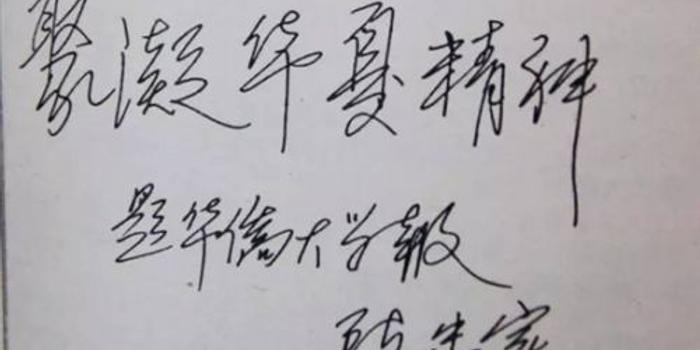 聚凝华夏精神
题华侨大学报